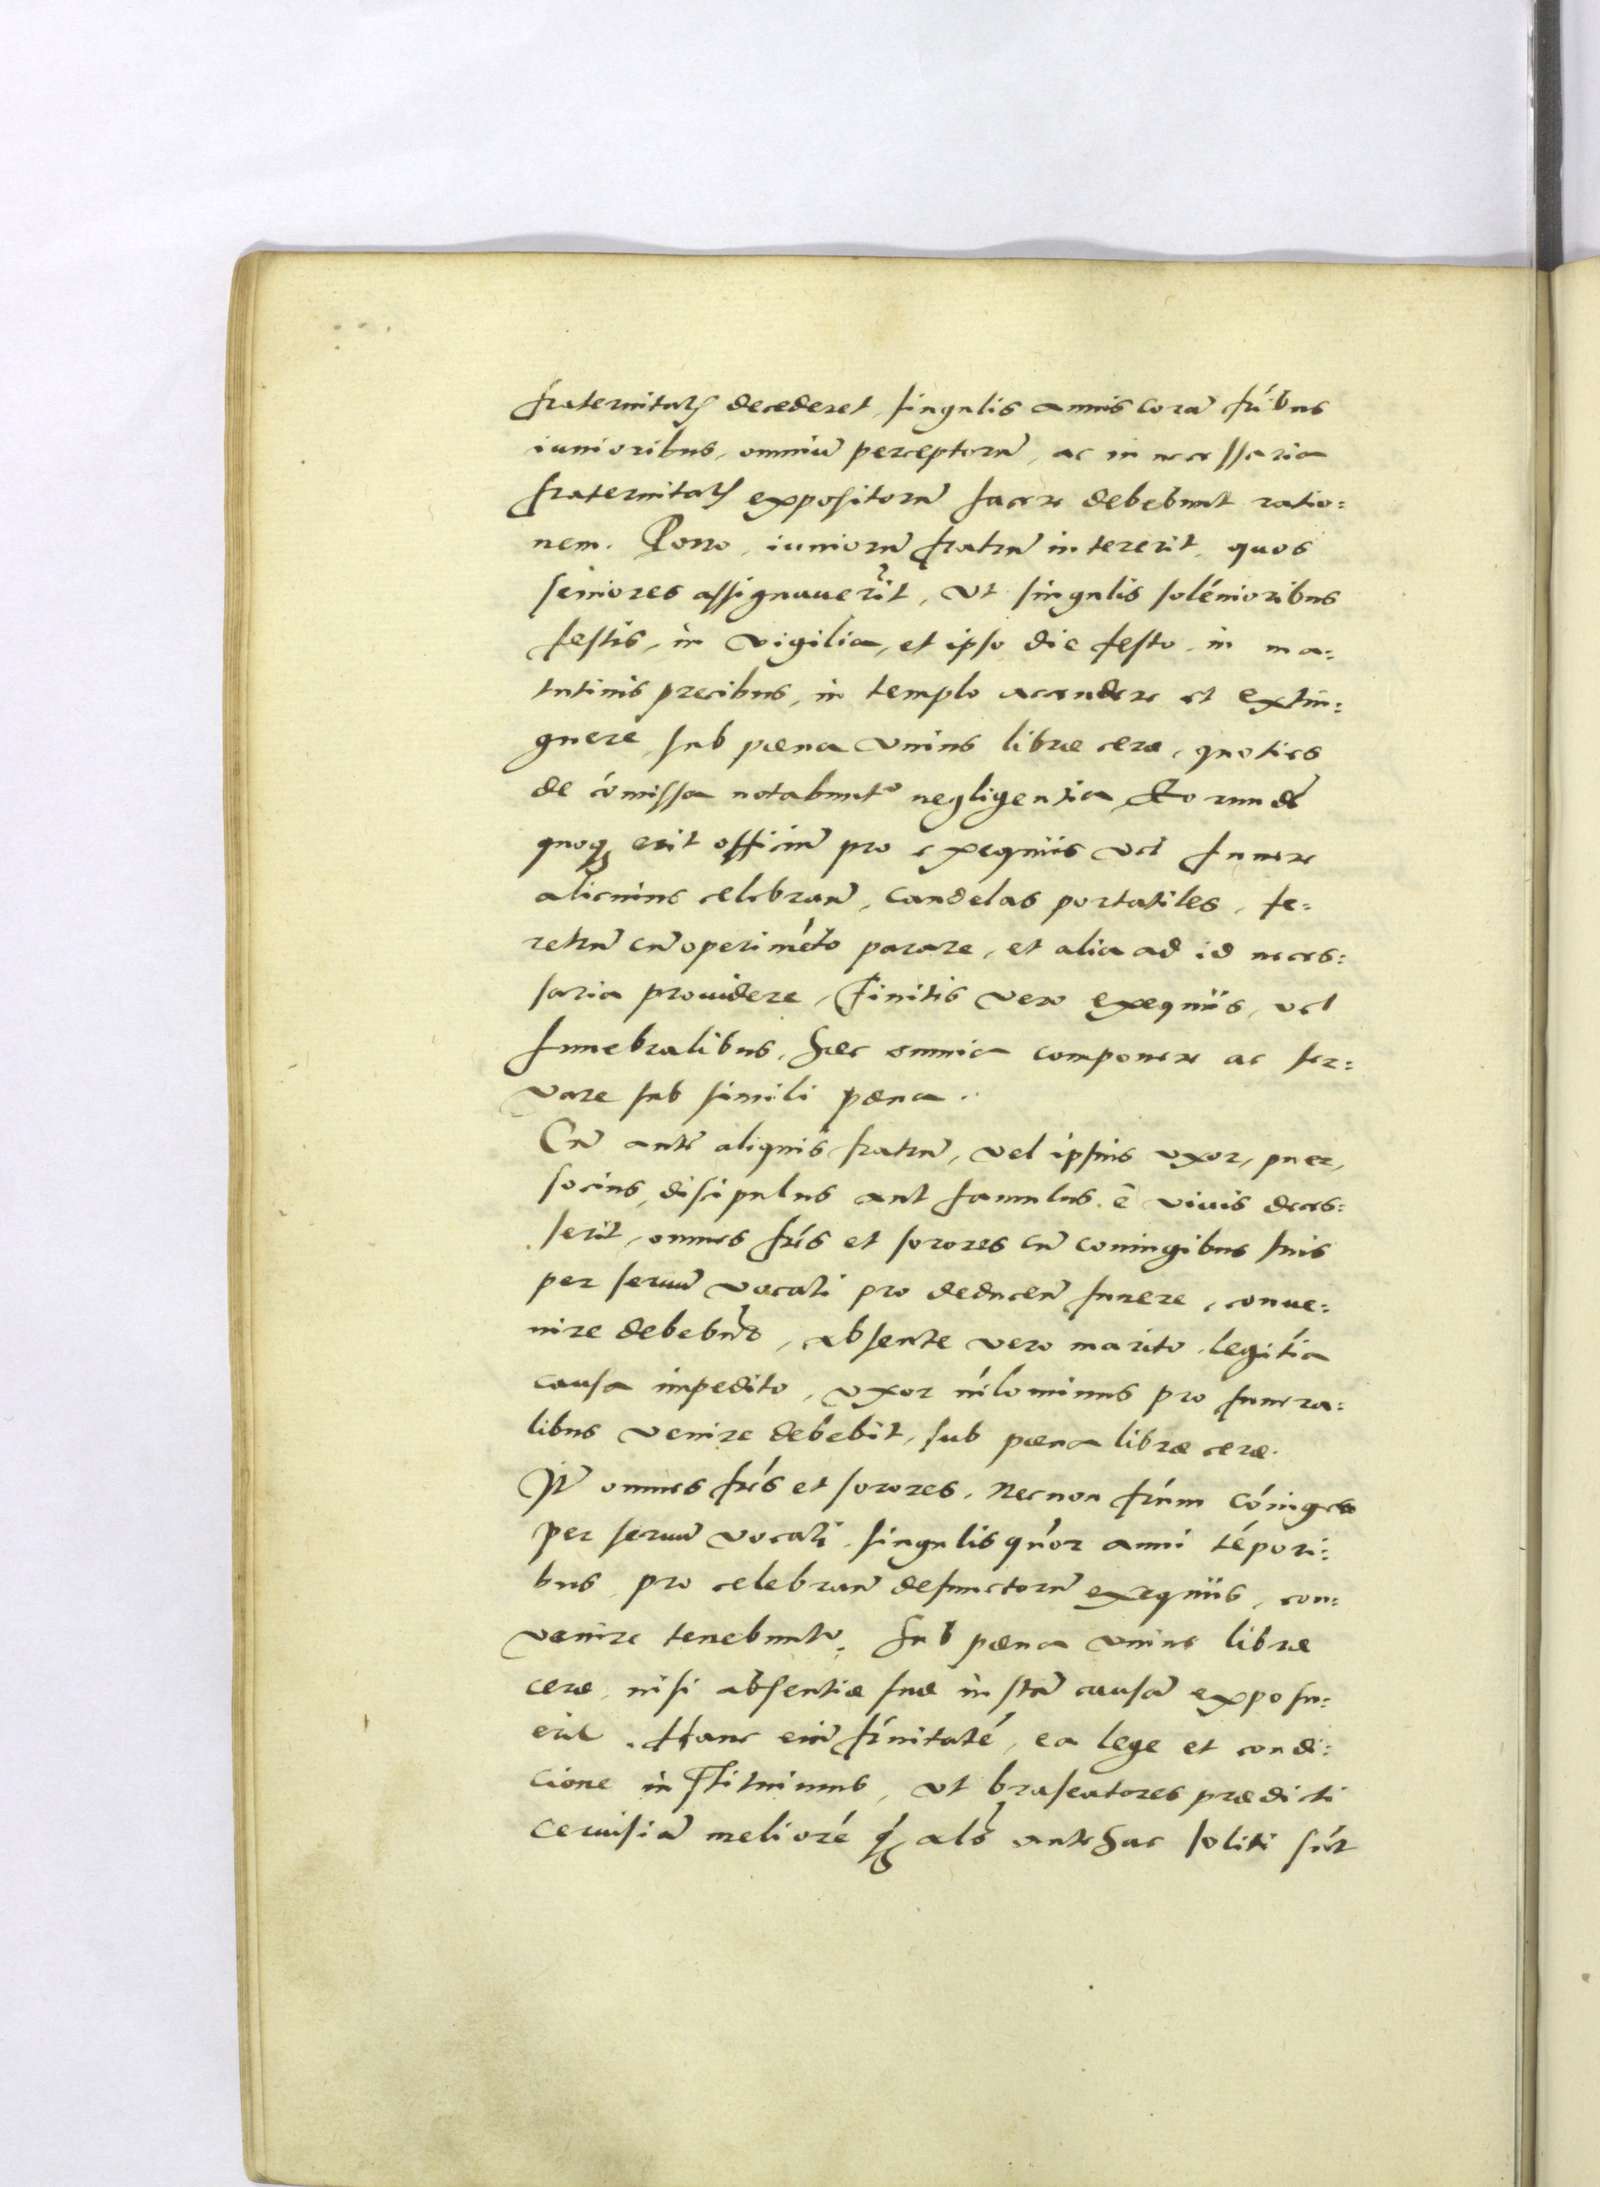 fraternitatȝ decederet, singulis annis corā frībus
iunioribus, omniū perceptorū, ac in necessaria
fraternitatȝ expositorū facere debebunt ratio=
nem. Porro, iuniorū fratrū intererit, quos
seniores assignauerīt, vt singulis solēnioribus
festis, in vigilia, et ipso die festo in ma=
tutinis precibus, in templo accendere et extin=
guere, sub pœna vnius libræ ceræ, quoties
de cōmissa notabunt' negligentia, Eorundē
quoqȝ erit officiū pro exequiis vel funere
alicuius celebran̄, candelas portatiles, fe=
retrū cū operimēto parare, et alia ad id neces=
saria prouidere, Finitis vero exequiis, vel
funebralibus, hæc omnia componere ac ser=
vare sub simili pœna.
Cū autē aliquis fratrū, vel ipsius vxor, puer,
socius, discipulus aut famulus ē viuis deces=
serit, omnes frēs et sorores cū coniugibus suis
per seruū vocati pro deducen̄ funere, conue=
nire debebūt, absente vero marito legitīa
causa impedito, vxor nīlominus pro funera=
libus venire debebit, sub pœna libræ ceræ.
Itē omnes frēs et sorores, necnon frūm cōiuges
per seruū vocati, singulis quōr anni tēpori=
bus, pro celebran̄ defunctorū exequiis, con=
venire tenebunt', sub pœna vnius libræ
ceræ, nisi absentiæ suæ iustā causā exposu=
erit. Hanc eiā frnitatē, ea lege et condi=
cione instituimus, vt braseatores prædicti
ceruisiā meliorē qȝ als antehac soliti sūt